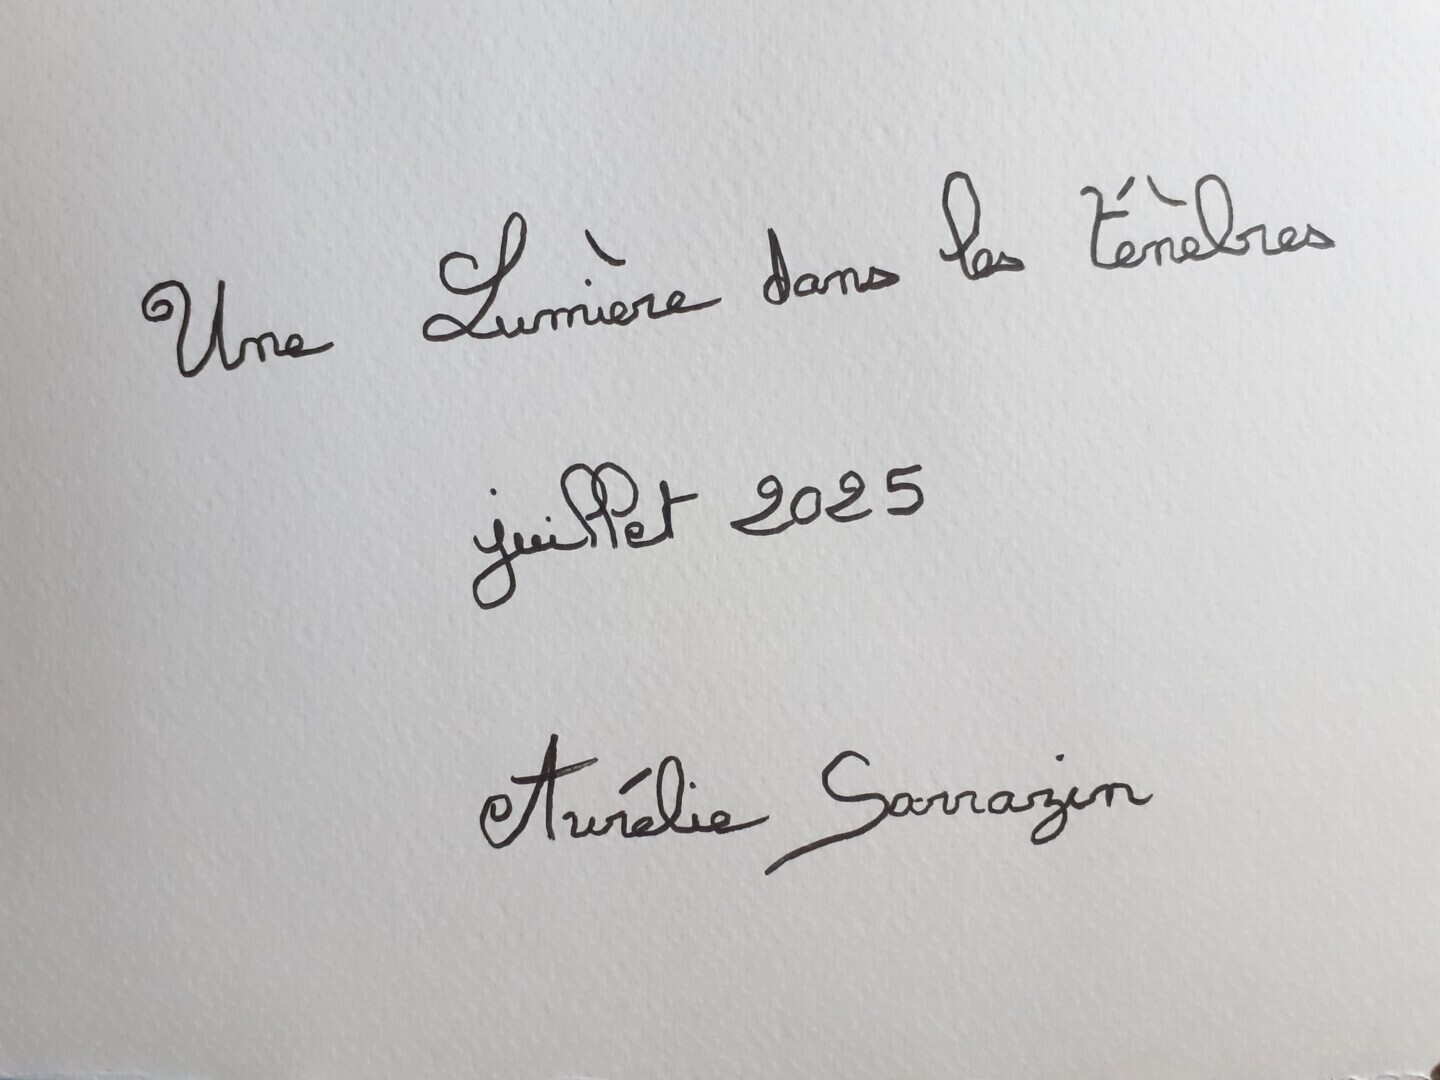 Une Lumière dans les ténèbres
juillet 2025
Aurélie Sarrazin